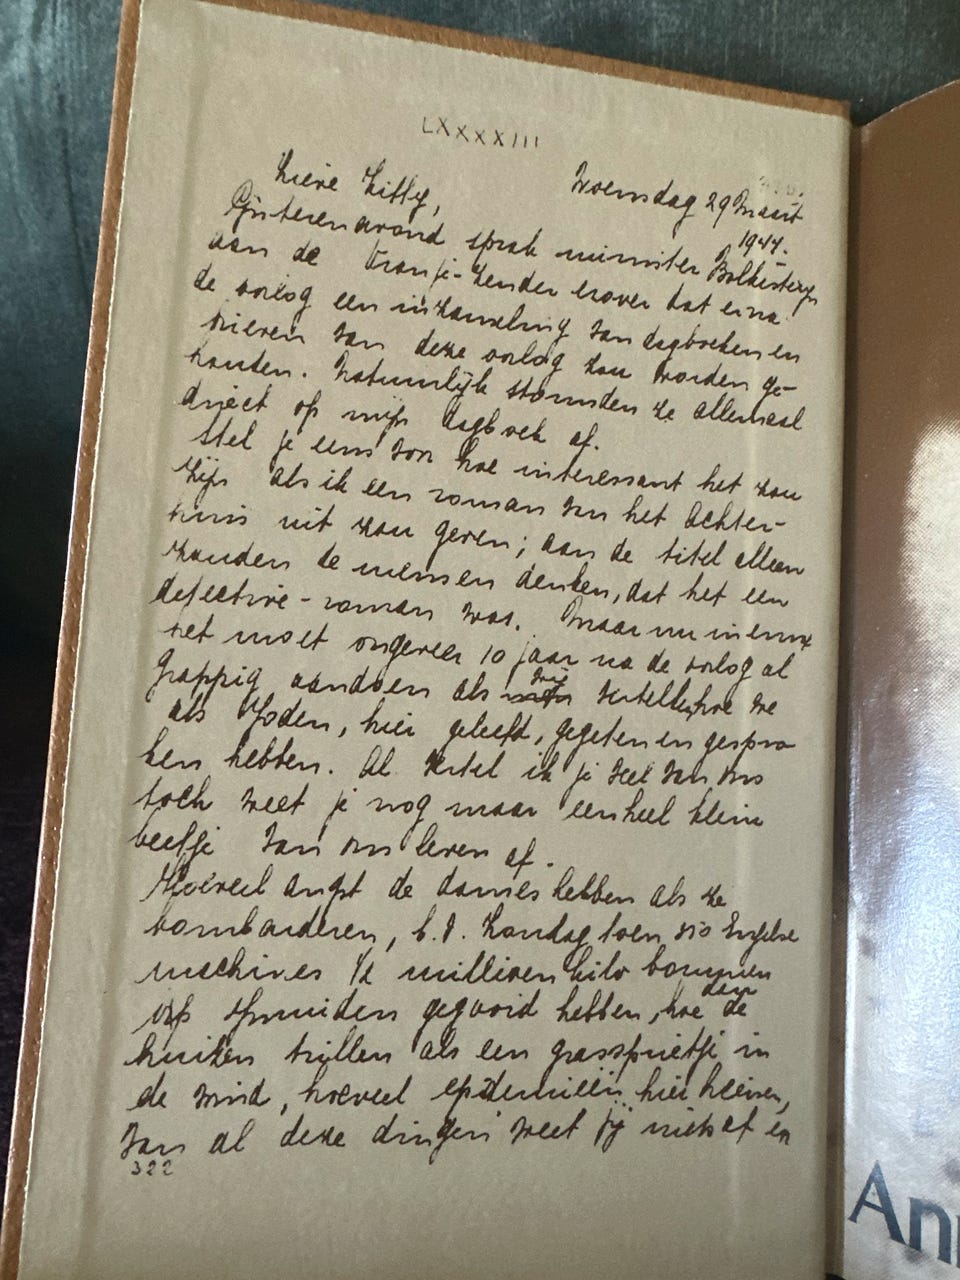 LXXXXIII
Lieve Kitty,
Woensdag 29 Maart
1944.
Gisterenavond sprak minister Bolkesteyn
aan de Oranje-zender erover dat er na
de oorlog een inzameling van dagboeken en
brieven van deze oorlog zou worden ge-
houden. Natuurlijk stormden ze allemaal
direct op mijn dagboek af.
Stel je eens voor hoe interessant het zou
zijn als ik een roman van het Achter-
huis uit zou geven; aan de titel alleen
zouden de mensen denken, dat het een
detective-roman was. Maar nu in ernst
het moet ongeveer 10 jaar na de oorlog al
grappig aandoen als wij vertellen, hoe we
als Joden, hier geleefd, gegeten en gespro
ken hebben. Al vertel ik je veel van ons
toch weet je nog maar een heel klein
beetje van ons leven af.
Hoeveel angst de dames hebben als ze
bombarderen, b.v. Zondag toen 350 Engelse
machines ½ millioen kilo bommen
op Ijmuiden gegooid hebben, hoe dan de
huizen trillen als een grassprietje in
de wind, hoeveel epidemieën hier heersen,
van al deze dingen weet jij niets af en
322
Ann